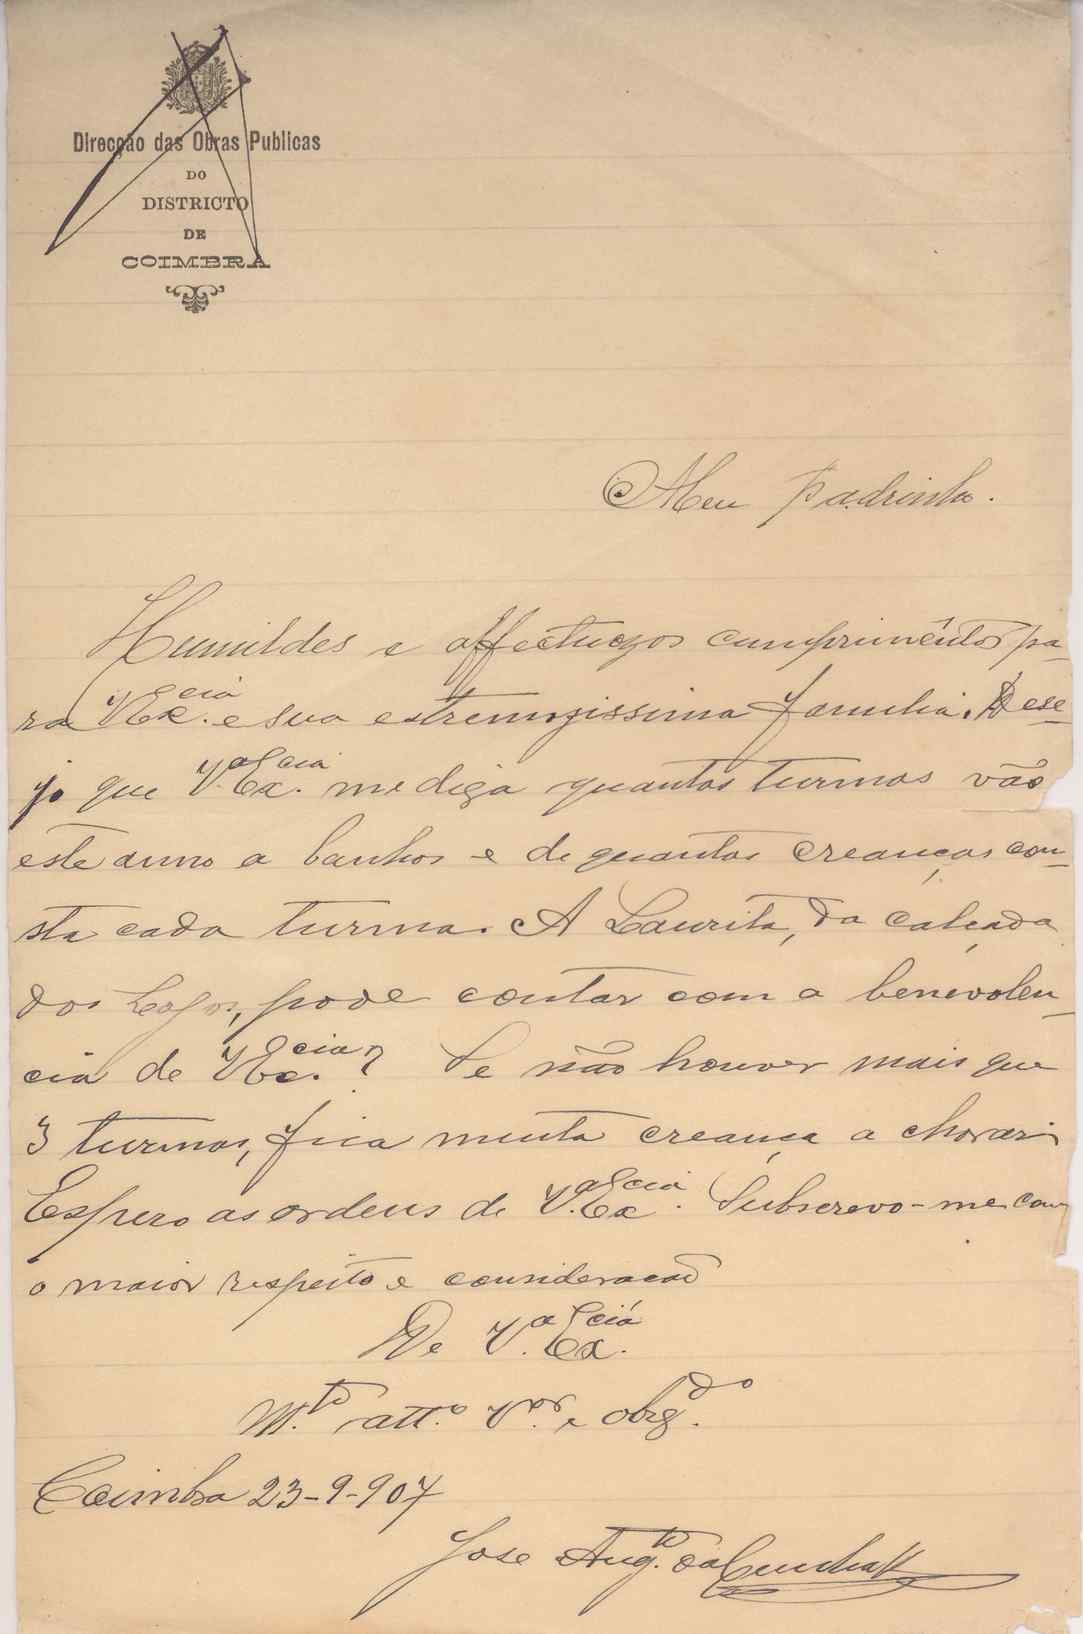 Direcção das Obras Publicas
DO
DISTRICTO
DE
COIMBRA
Meu Padrinho.
Humildes e affectuozos cumprimentos pa-
ra V Ex.cia e sua estremozissima familia. Dese-
jo que V.a Ex.cia me diga quantas turmas vão
este anno a banhos e de quantas creanças con-
sta cada turma. A Laurita, da calçada
dos, pode contar com a benevolen-
cia de V Ex.cia? Se não houver mais que
3 turmas, fica muita creança a chorar.
Espero as ordens de V.a Ex.cia. Subscrevo-me com
o maior respeito e consideração
De V.a Ex.cia
M.to att.o V.or e obrg.do
Coimbra 23-9-907
Jose Aug.to da Cunha